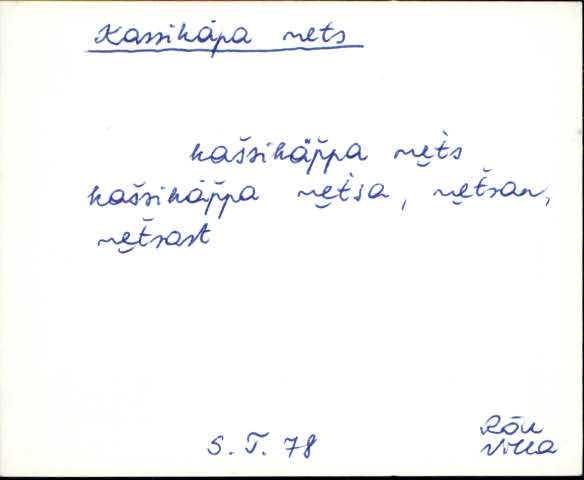 Kassikäpa nets
kašsikäp̌pa ne̮t̀s
kašsikäp̌pa ne̮t̀sa, ne̮ťsan,
ne̮ťsast
S. T. 78
Rõu
Villa